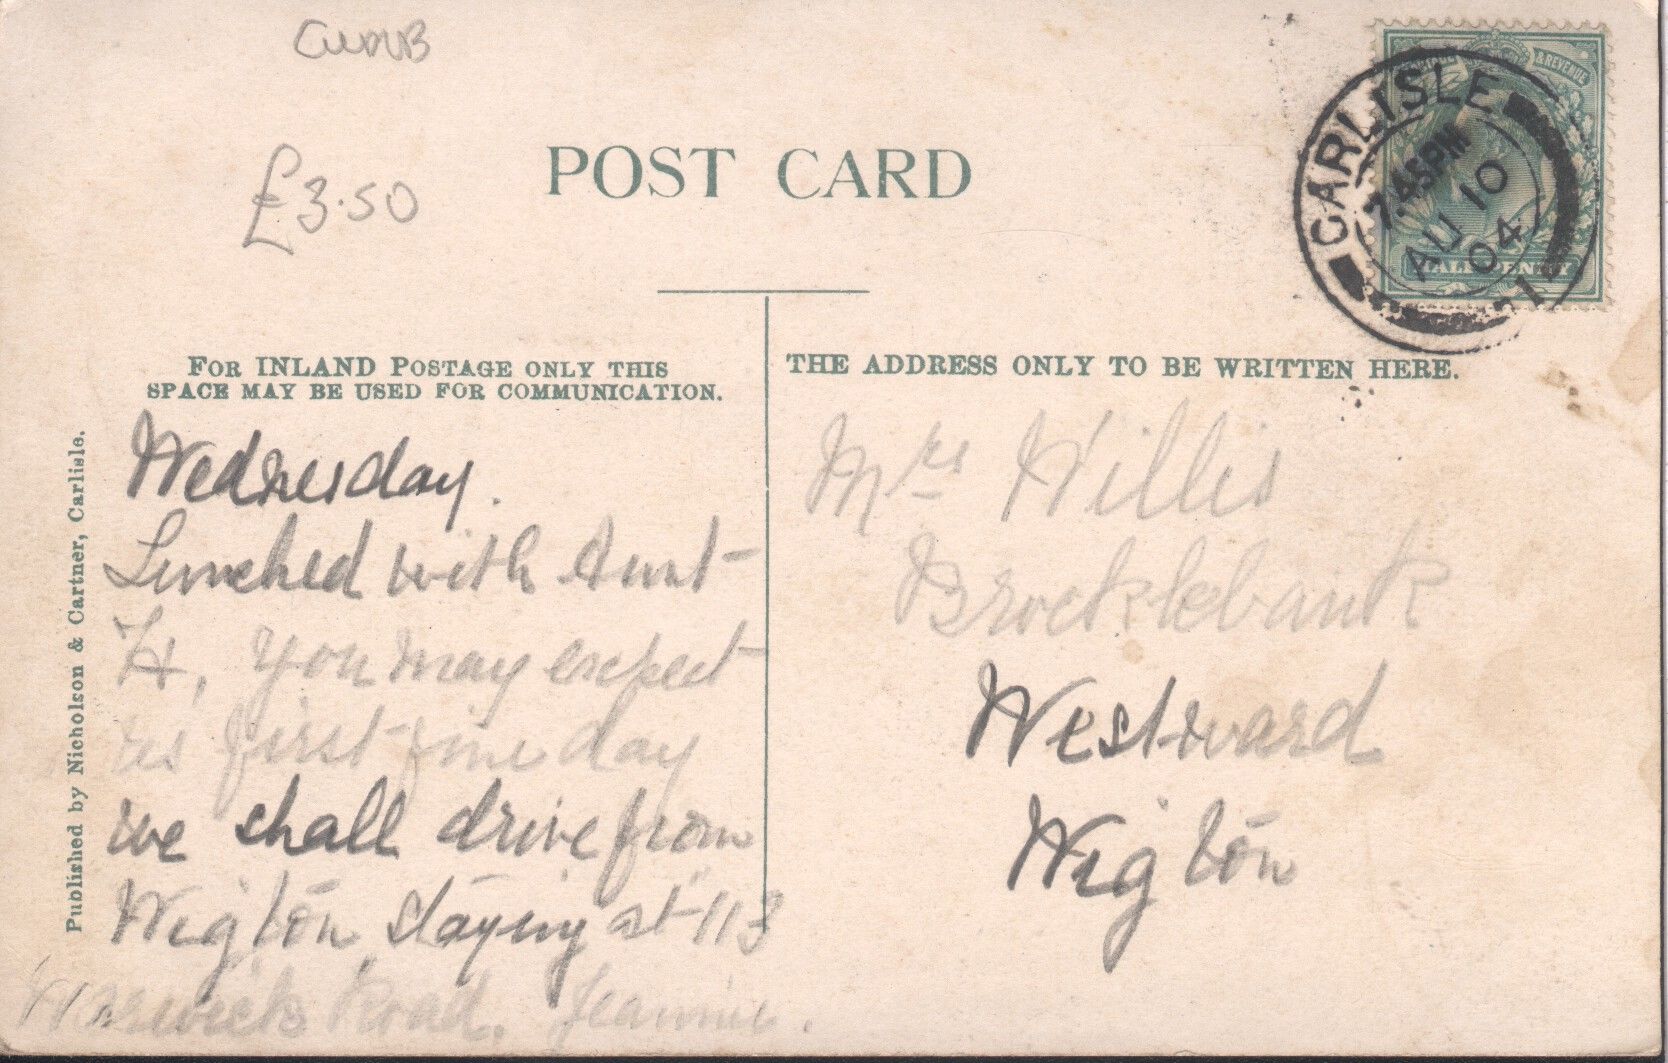 CUMB
£3.50
POST CARD
CARLISLE
7.45PM
AU 10
04
& REVENUE
HALFPENNY
FOR INLAND POSTAGE ONLY THIS
SPACE MAY BE USED FOR COMMUNICATION.
THE ADDRESS ONLY TO BE WRITTEN HERE.
Published by Nicholson & Cartner, Carlisle.
Wednesday.
Lunched with Aunt
H, you may expect
us first fine day
we shall drive from
Wigton, staying at 113
Warwick Road. Jeannie.
Mrs Willis
Brocklebank
Westward
Wigton